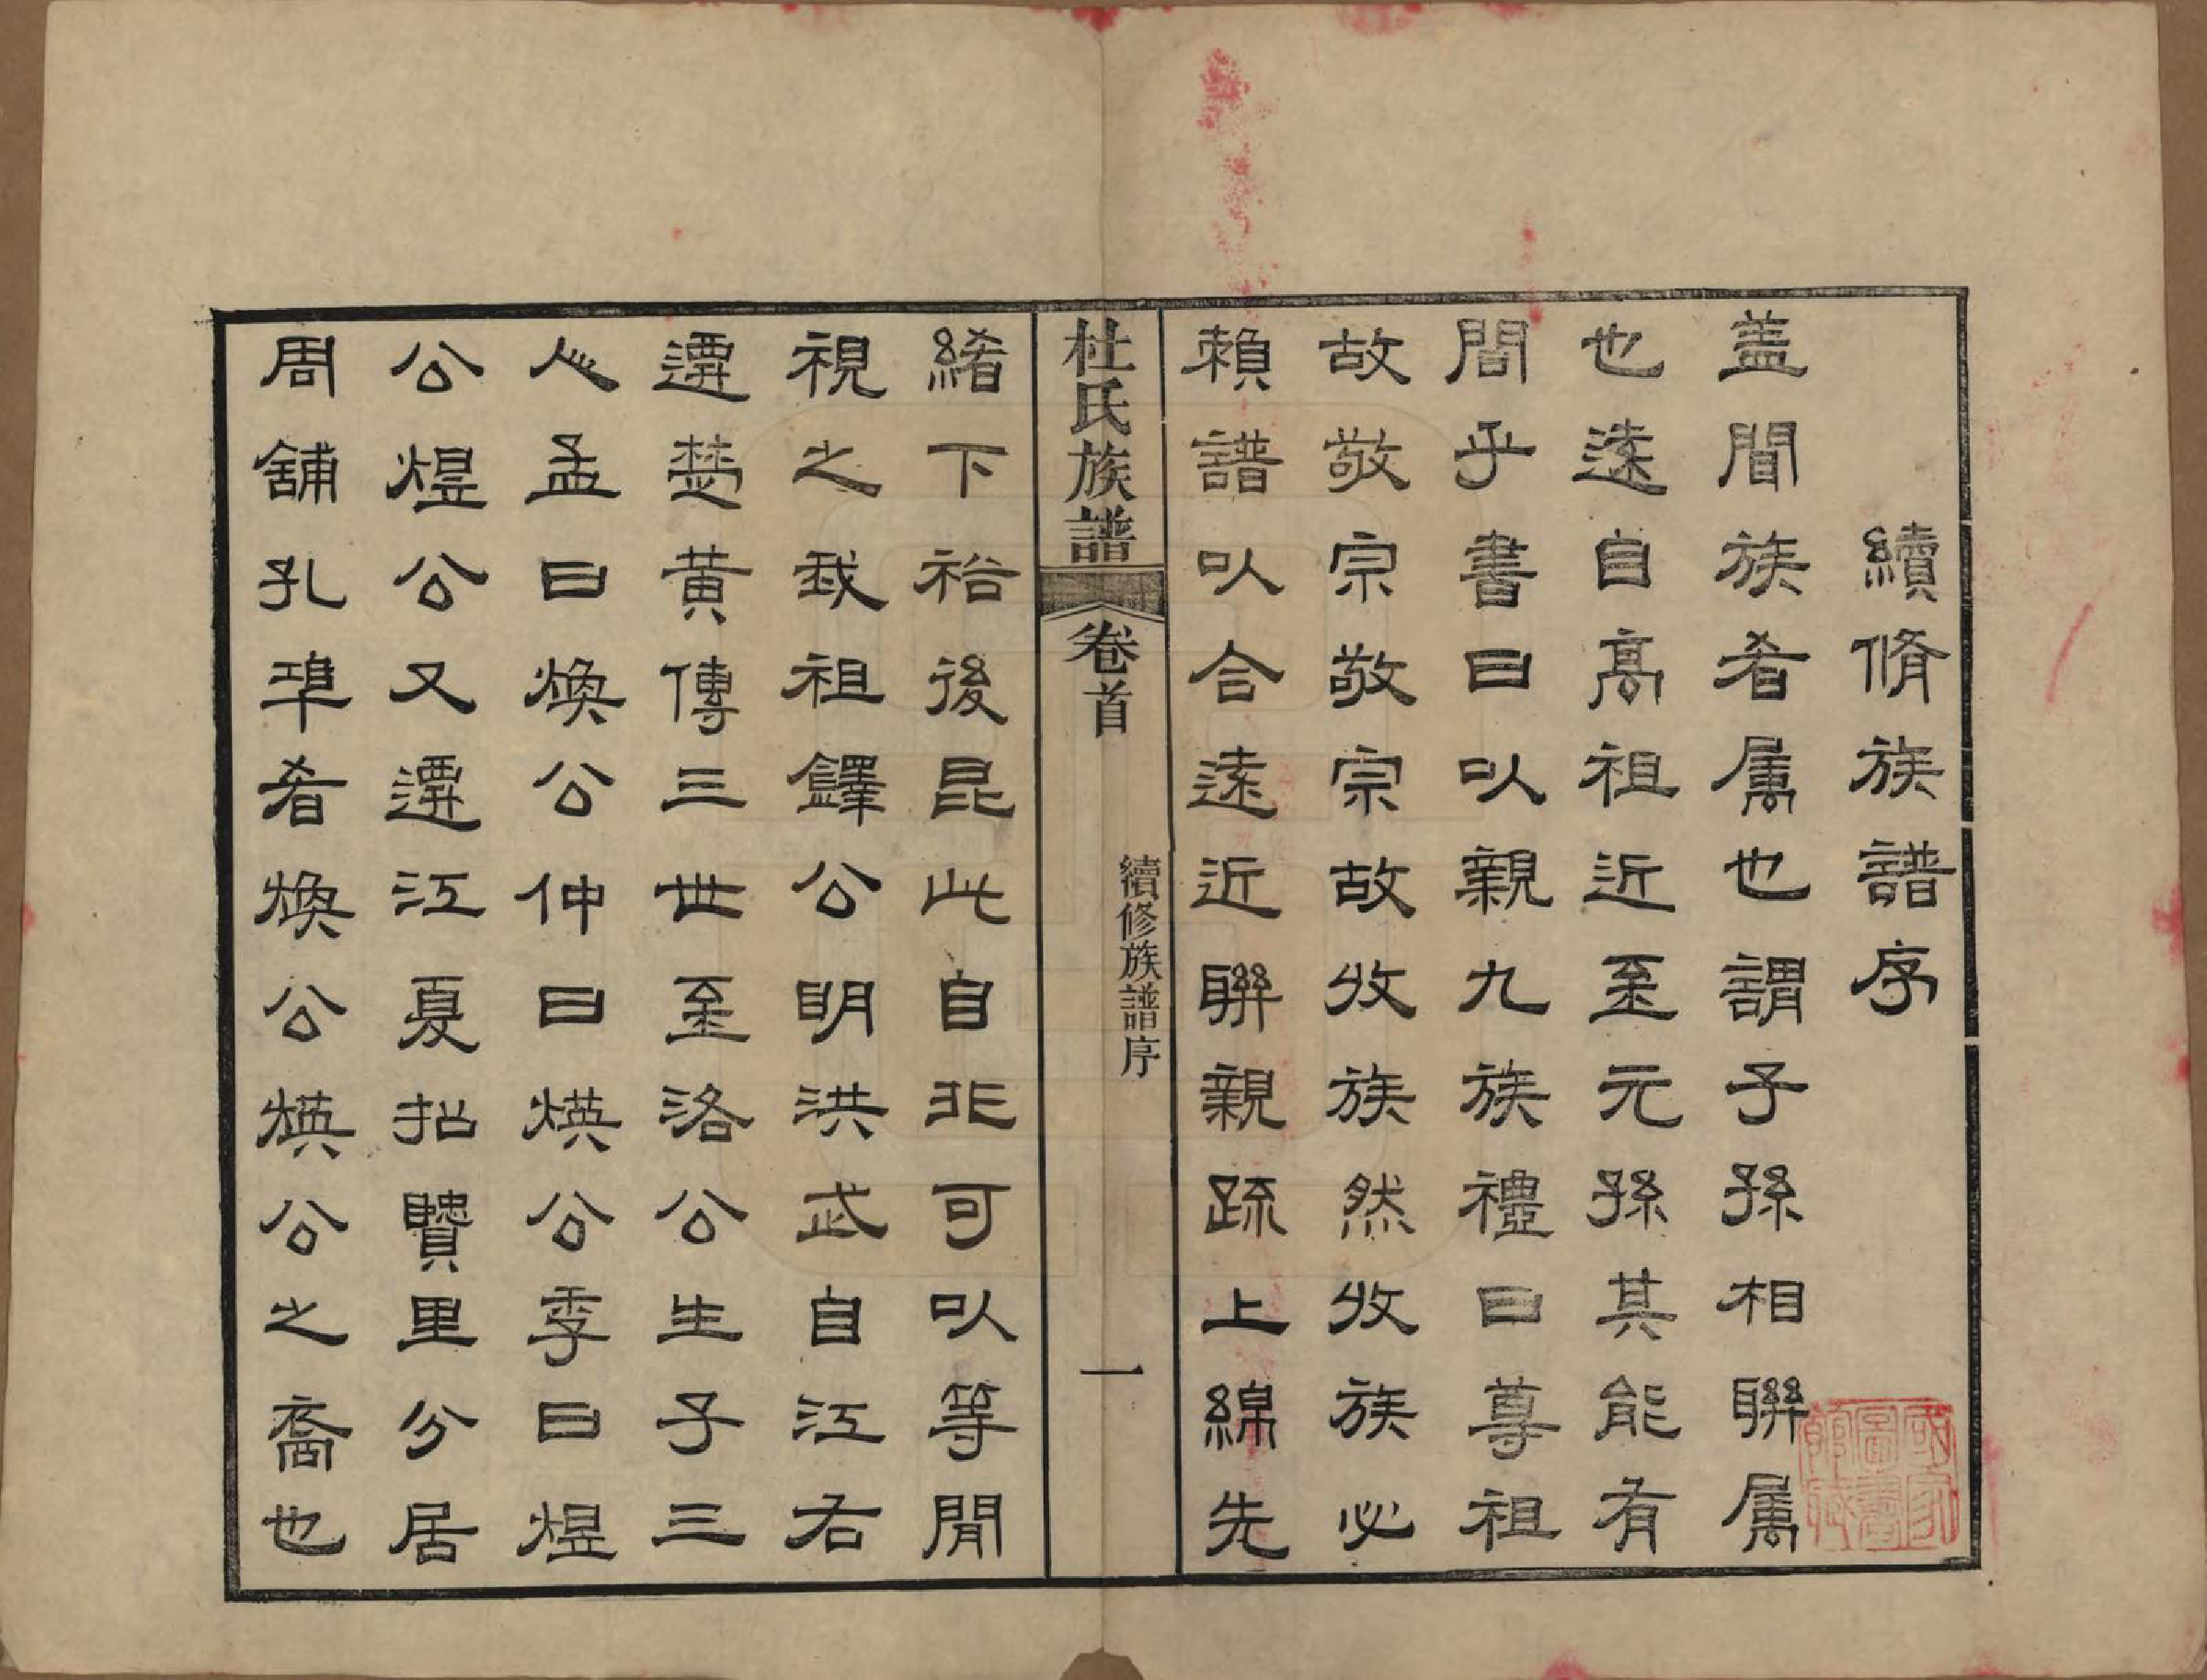 續脩族譜序
盖聞族者属也謂子孫相聯属
也遠自高祖近至元孫其能有
間乎書曰以親九族禮曰尊祖
故敬宗敬宗故收族然收族必
賴譜以合遠近聯親疏上綿先
杜氏族譜 卷首 續修族譜序 一
緒下裕後昆此自非可以等閒
視之我祖鐸公明洪武自江右
遷楚黄傳三世至洛公生子三
人孟曰煥公仲曰煐公季曰煜
公煜公又遷江夏招賢里分居
周舖孔埠者煥公煐公之裔也
國家圖書館藏